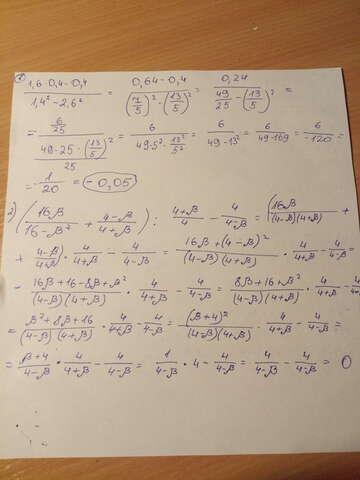 1) (1,6·0,4−0,4)/(1,4²−2,6²) = (0,64−0,4)/((7/5)²−(13/5)²) = 0,24/(49/25−(13/5)²) =
= (6/25)/((49−25·(13/5)²)/25) = 6/(49−5²·13²/5²) = 6/(49−13²) = 6/(49−169) = 6/−120 =
= −1/20 = −0,05
2) (16β/(16−β²) + (4−β)/(4+β)) : (4+β)/4 − 4/(4−β) = (16β/((4−β)(4+β)) +
+ (4−β)/(4+β)) · 4/(4+β) − 4/(4−β) = (16β+(4−β)²)/((4−β)(4+β)) · 4/(4+β) − 4/(4−β) =
= (16β+16−8β+β²)/((4−β)(4+β)) · 4/(4+β) − 4/(4−β) = (8β+16+β²)/((4−β)(4+β)) · 4/(4+β) − 4/(4−
= (β²+8β+16)/((4−β)(4+β)) · 4/(4+β) − 4/(4−β) = (β+4)²/((4−β)(4+β)) · 4/(4+β) − 4/(4−β) =
= (β+4)/(4−β) · 4/(4+β) − 4/(4−β) = 1/(4−β) · 4 − 4/(4−β) = 4/(4−β) − 4/(4−β) = 0